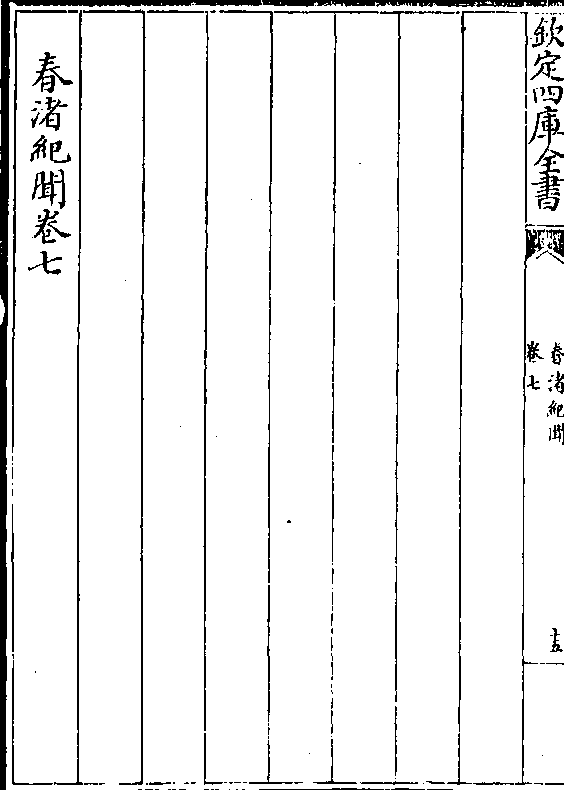 欽定四庫全書
春渚紀聞
卷七
十五
春渚紀聞卷七